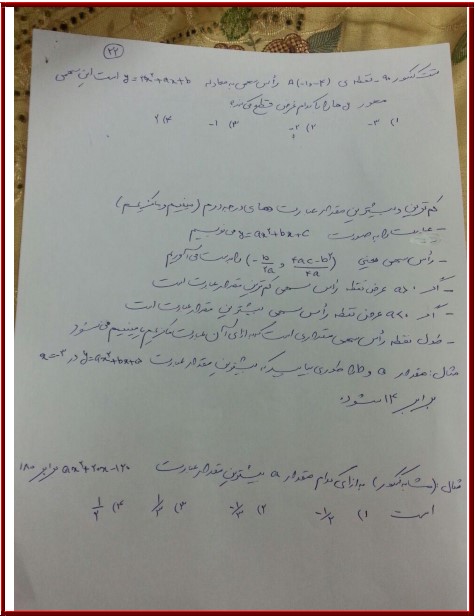 ۲۲
تست کنکور ۹۰ - نقطه ی A(-۱و-۴) رأس سهمی به معادله y=۲x²+ax+b است این سهمی
محور y ها را با کدام عرض قطع می کند؟
۱) ۳- ۲) ۲- ۳) ۱- ۴) ۲
کم ترین و بیشترین مقدار عبارت های درجه دوم (مینیمم و ماکزیمم)
- عبارت را به صورت y=ax²+bx+c می نویسیم
- رأس سهمی یعنی (-b/۲a و ۴ac-b²/۴a) را بدست می آوریم
- اگر a>۰ عرض نقطه رأس سهمی کم ترین مقدار عبارت است
- اگر a<۰ عرض نقطه رأس سهمی بیشترین مقدار عبارت است
- طول نقطه رأس سهمی مقداری است که به ازای آن عبارت ماکزیمم یا مینیمم می شود
مثال: مقدار a و b را طوری بیابید که بیشترین مقدار عبارت y=ax²+bx+۵ در x=۳
برابر ۱۴ شود؟
مثال (مشابه کنکور) به ازای کدام مقدار a بیشترین مقدار عبارت ax²+۲۰x-۱۲۰ برابر ۱۸۰
است ۱) -۱/۲ ۲) -۱/۳ ۳) ۱/۳ ۴) ۱/۲